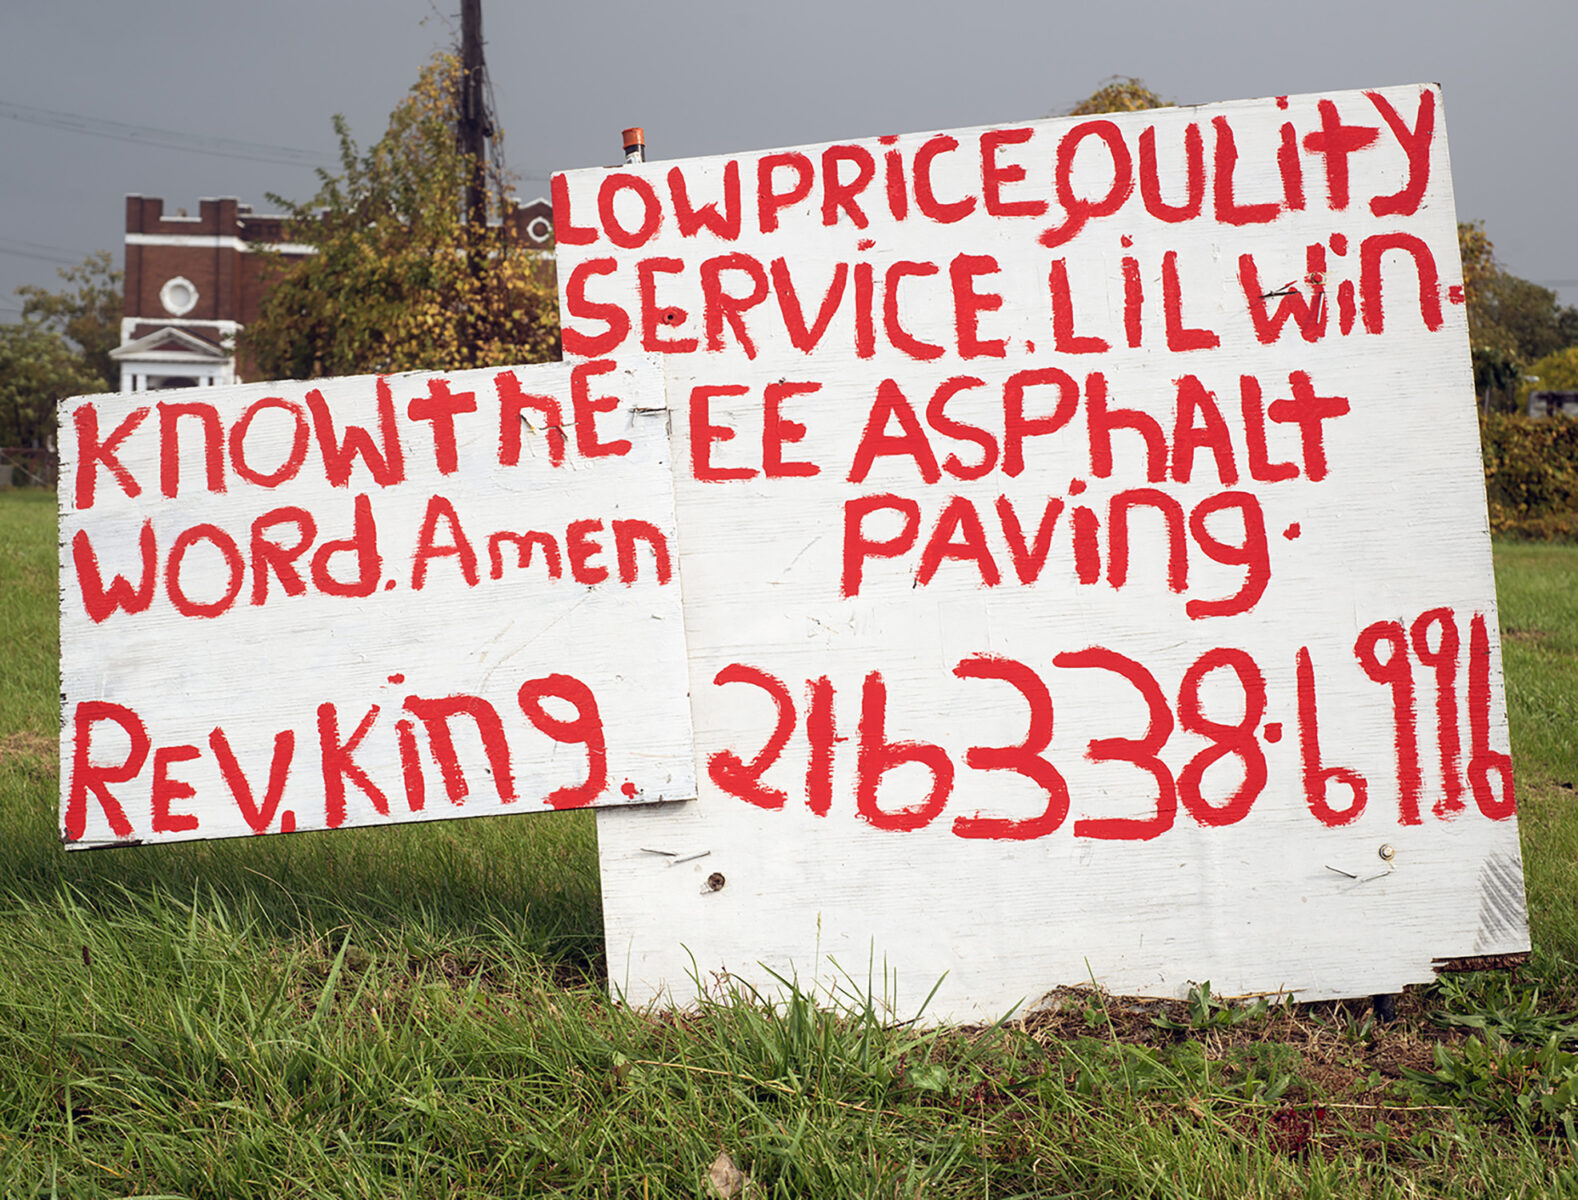 KnOWthE
WORd. AmEn
REV. King.
LOWPRiCE QULity
SERViCE. LiL Win.
EE ASPhALt
PAVing.
216338.6996